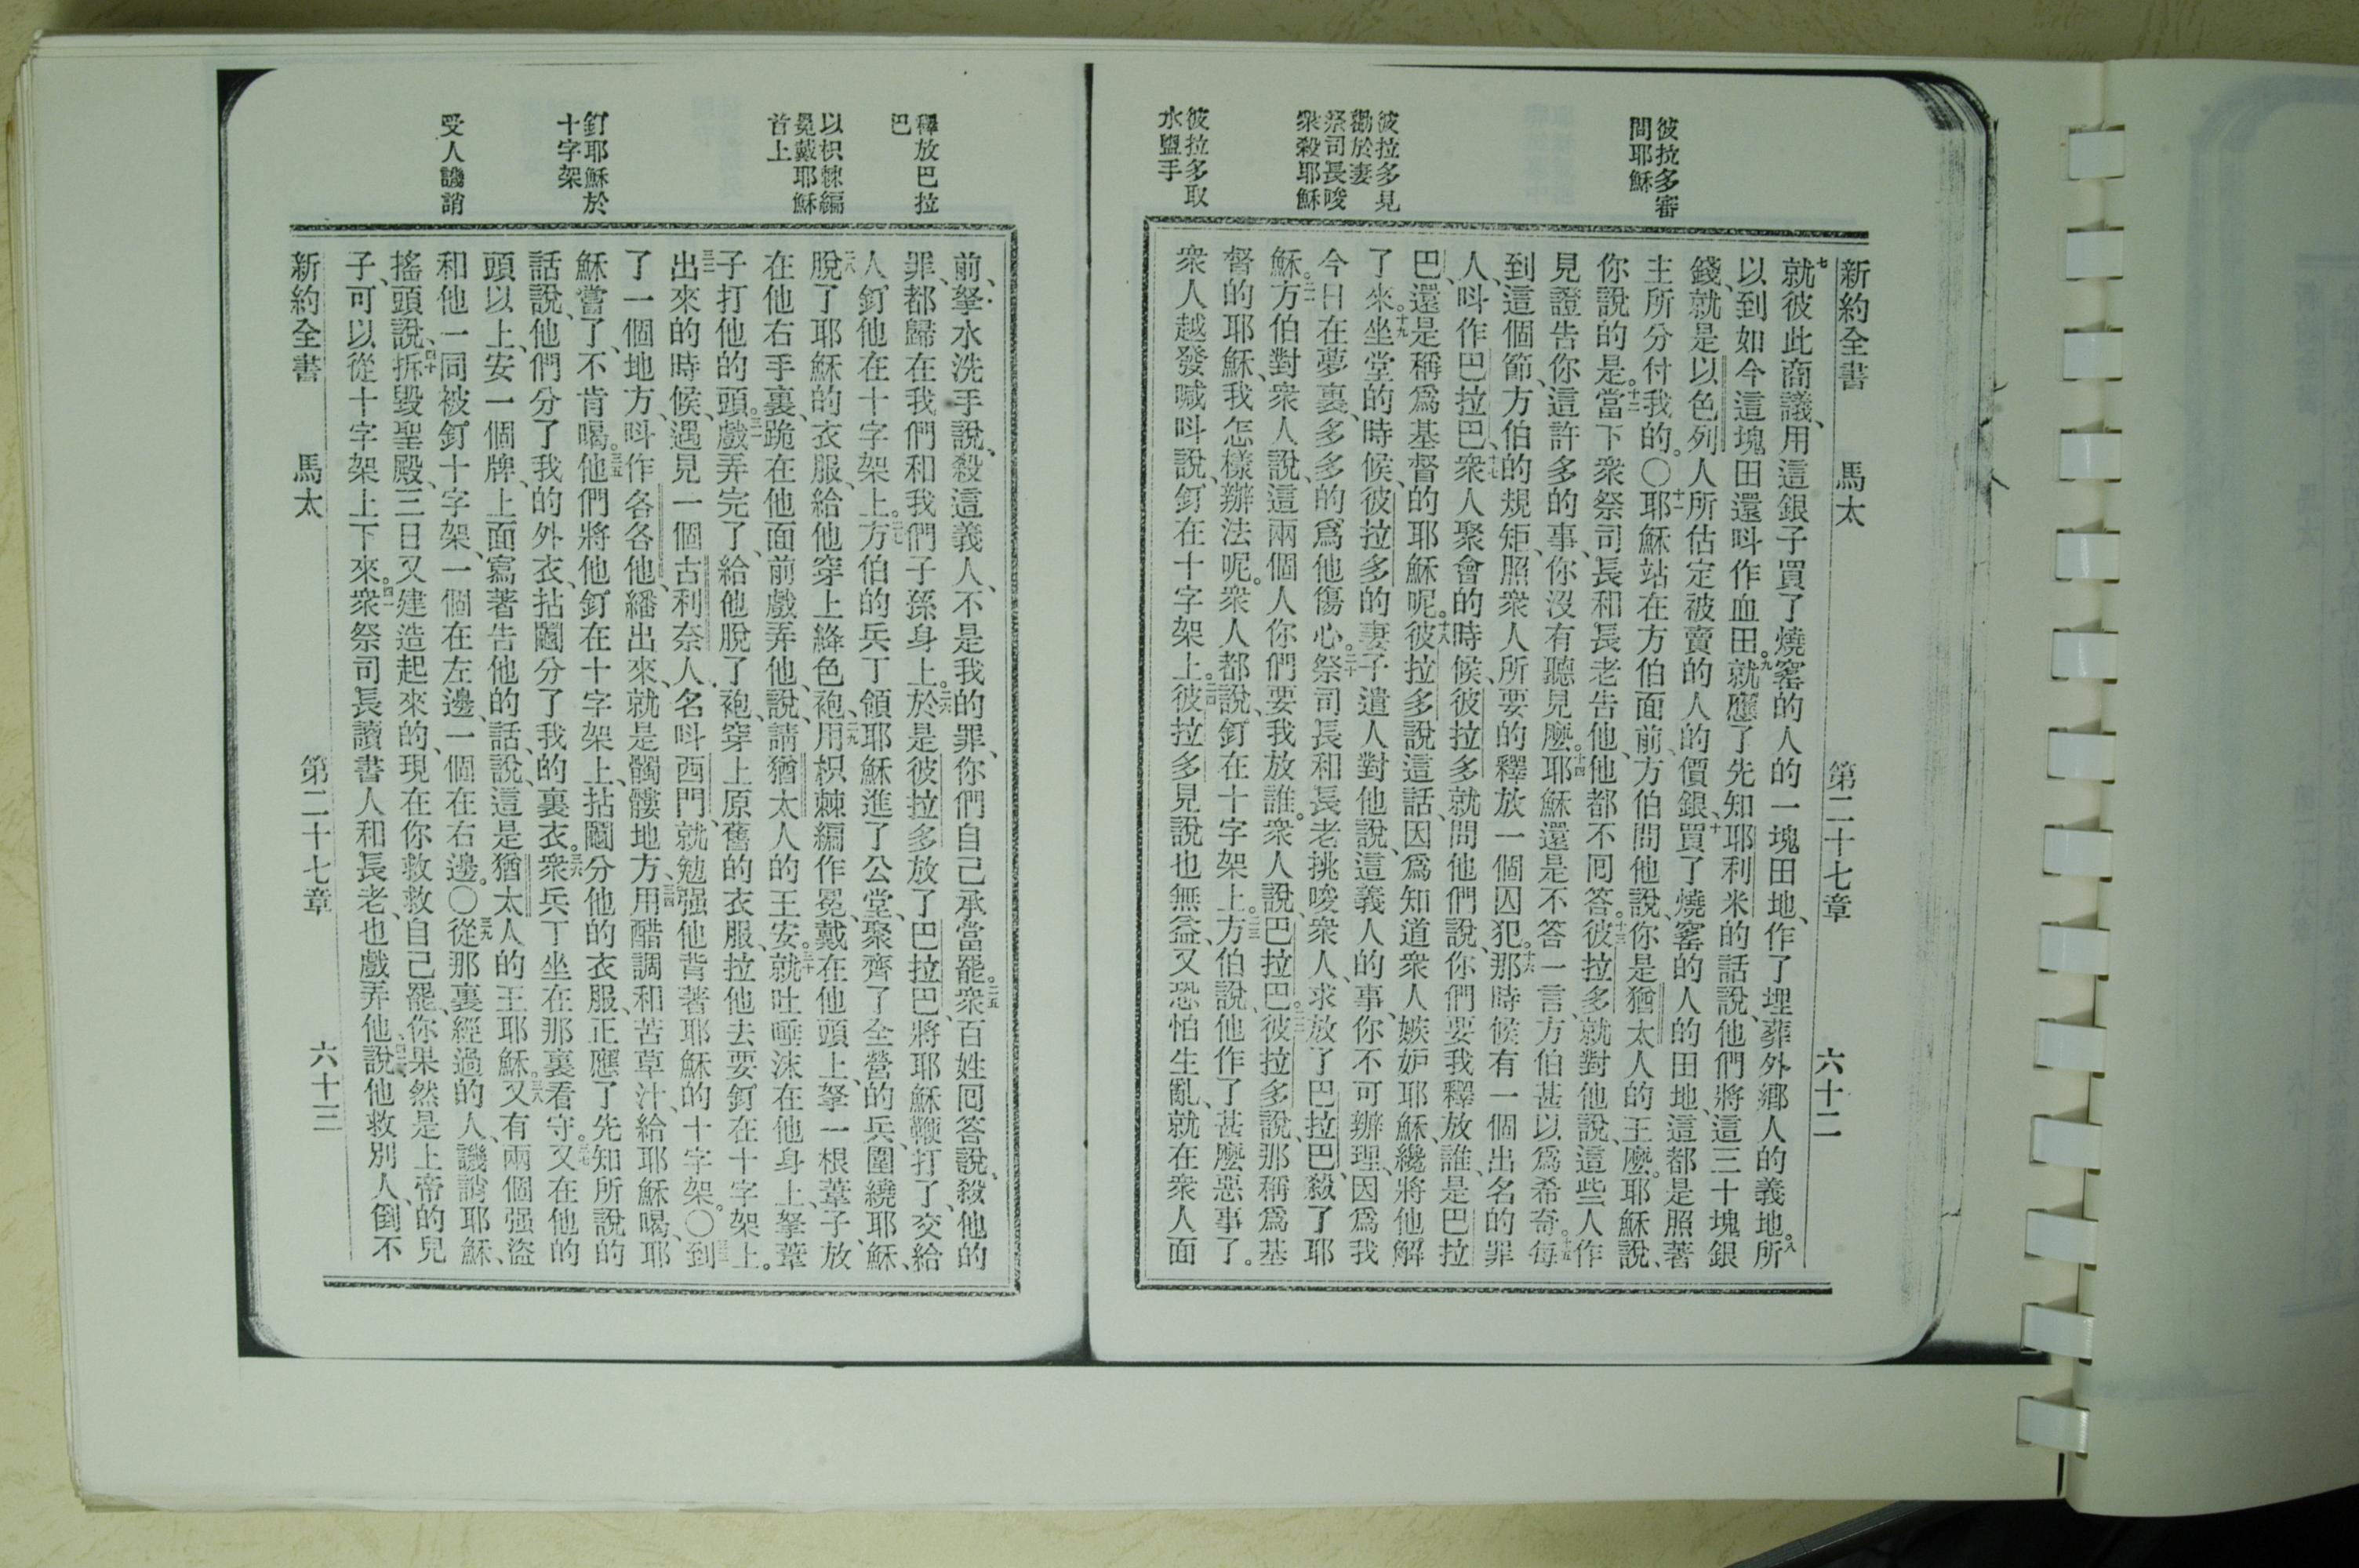 彼拉多審
問耶穌
彼拉多見
勸於妻
祭司長唆
衆殺耶穌
彼拉多取
水盥手
新約全書 馬太 第二十七章 六十二
七就彼此商議、用這銀子買了燒窰的人的一塊田地、作了埋葬外鄉人的義地。八所
以到如今這塊田還呌作血田。九就應了先知耶利米的話說、他們將這三十塊銀
錢、就是以色列人所估定被賣的人的價銀、十買了燒窰的人的田地、這都是照著
主所分付我的。〇十一耶穌站在方伯面前、方伯問他說、你是猶太人的王麼。耶穌說、
你說的是。十二當下衆祭司長和長老告他、他都不囘答。十三彼拉多就對他說、這些人作
見證告你這許多的事、你沒有聽見麼。十四耶穌還是不答一言、方伯甚以爲希奇。十五每
到這個節、方伯的規矩、照衆人所要的釋放一個囚犯。十六那時候有一個出名的罪
人、呌作巴拉巴、十七衆人聚會的時候、彼拉多就問他們說、你們要我釋放誰、是巴拉
巴、還是稱爲基督的耶穌呢。十八彼拉多說這話、因爲知道衆人嫉妒耶穌、纔將他解
了來。十九坐堂的時候、彼拉多的妻子遣人對他說、這義人的事、你不可辦理、因爲我
今日在夢裏、多多的爲他傷心。二十祭司長和長老挑唆衆人、求放了巴拉巴、殺了耶
穌。二一方伯對衆人說、這兩個人你們要我放誰。衆人說、巴拉巴。二二彼拉多說、那稱爲基
督的耶穌、我怎樣辦法呢。衆人都說、釘在十字架上。二三方伯說、他作了甚麼惡事了。
衆人越發喊呌說、釘在十字架上。二四彼拉多見說也無益、又恐怕生亂、就在衆人面
釋放巴拉
巴
以枳棘編
冕戴耶穌
首上
釘耶穌於
十字架
受人譏誚
前、拏水洗手說、殺這義人、不是我的罪、你們自己承當罷。二五衆百姓囘答說、殺他的
罪、都歸在我們和我們子孫身上。二六於是彼拉多放了巴拉巴、將耶穌鞭打了、交給
人、釘他在十字架上。二七方伯的兵丁領耶穌進了公堂、聚齊了全營的兵、圍繞耶穌、
二八脫了耶穌的衣服、給他穿上絳色袍、二九用枳棘編作冕、戴在他頭上、拏一根葦子、放
在他右手裏、跪在他面前戲弄他、說、請猶太人的王安。三十就吐唾沫在他身上、拏葦
子打他的頭。三一戲弄完了、給他脫了袍、穿上原舊的衣服、拉他去要釘在十字架上。
三二出來的時候、遇見一個古利奈人、名呌西門、就勉强他背著耶穌的十字架。〇三三到
了一個地方、呌作各各他、繙出來、就是髑髏地方、三四用醋調和苦草汁、給耶穌喝、耶
穌嘗了、不肯喝。三五他們將他釘在十字架上、拈鬮分他的衣服、正應了先知所說的
話說、他們分了我的外衣、拈鬮分了我的裏衣。三六衆兵丁坐在那裏看守。三七又在他的
頭以上、安一個牌、上面寫著告他的話、說、這是猶太人的王耶穌。三八又有兩個强盜
和他一同被釘十字架、一個在左邊、一個在右邊。〇三九從那裏經過的人、譏誚耶穌、
搖頭說、四十拆毀聖殿、三日又建造起來的、現在你救救自己罷、你果然是上帝的兒
子、可以從十字架上下來。四一衆祭司長讀書人和長老、也戲弄他、說、四二他救別人、倒不
新約全書 馬太 第二十七章 六十三